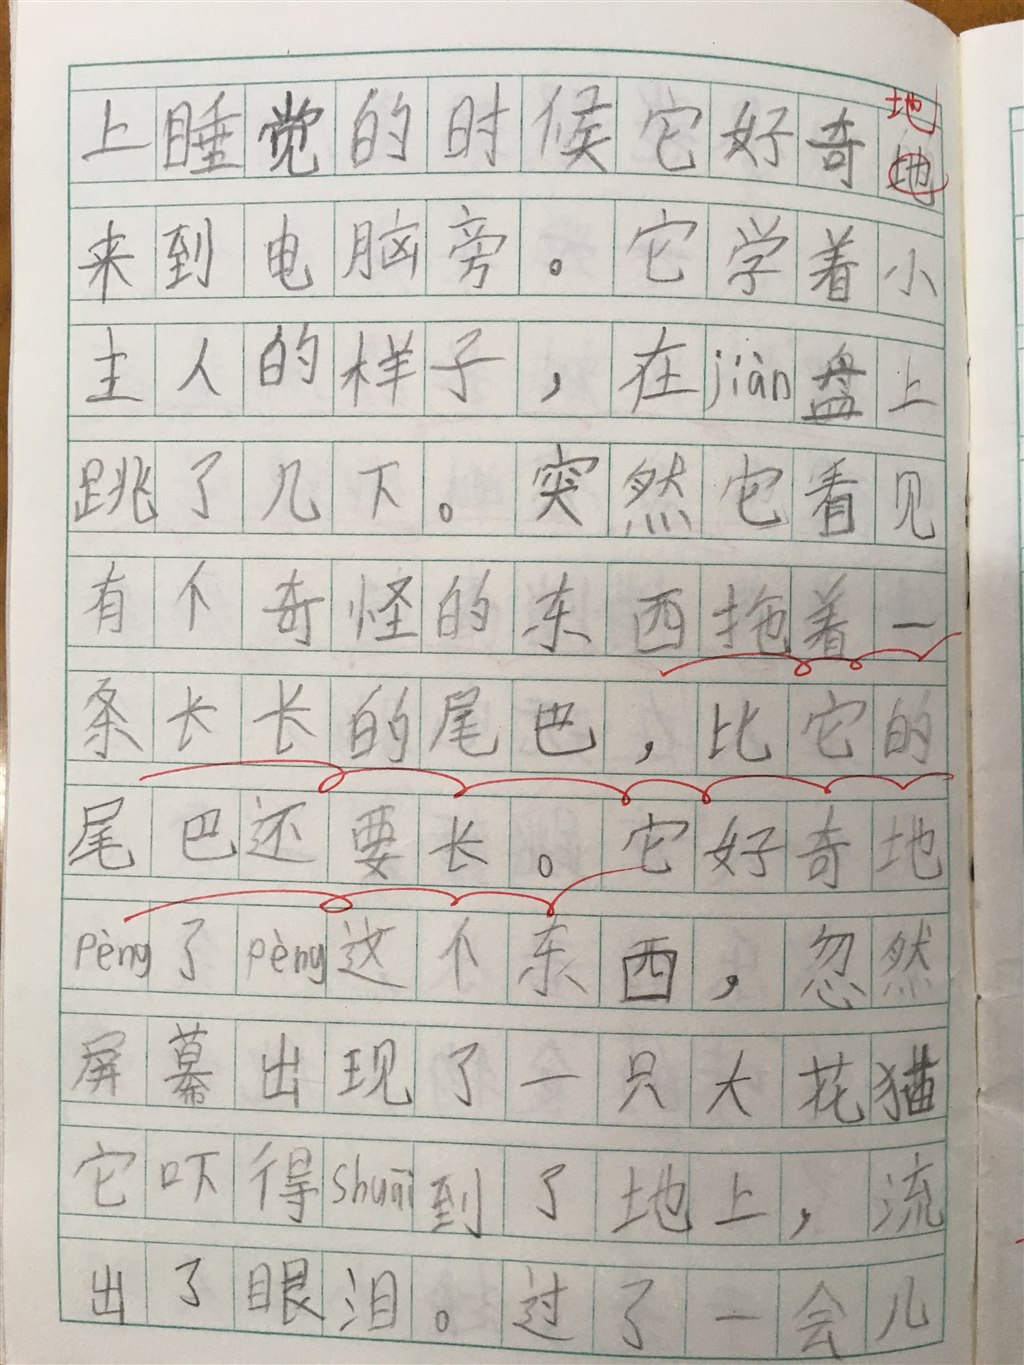 地
上睡觉的时候它好奇地
来到电脑旁。它学着小
主人的样子，在jiàn盘上
跳了几下。突然它看见
有个奇怪的东西拖着一
条长长的尾巴，比它的
尾巴还要长。它好奇地
pèng了pèng这个东西，忽然
屏幕出现了一只大花猫
它吓得shuāi到了地上，流
出了眼泪。过了一会儿